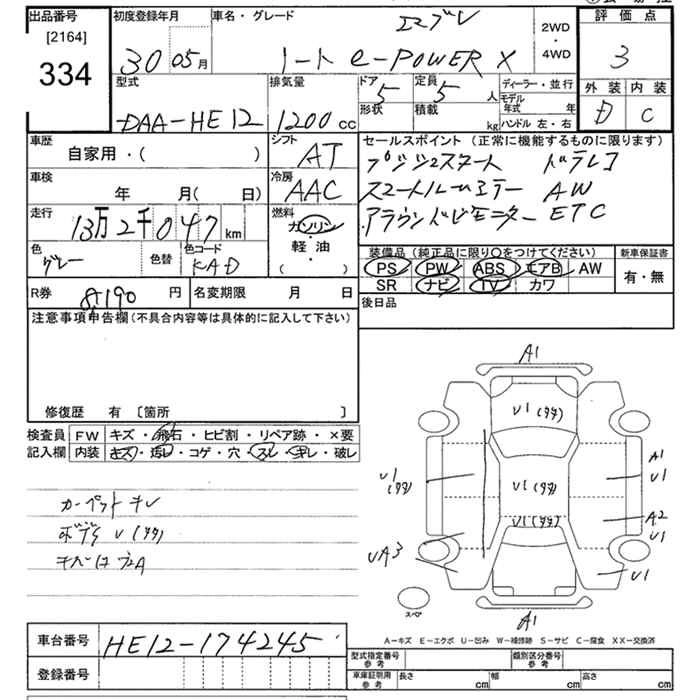 出品番号
[2164]
334
初度登録年月
30 05月
車名・グレード
ノート e-POWER X
2WD
・
4WD
評価点
3
外装 内装
D C
型式
DAA-HE12
排気量
1200cc
ドア 5
形状
定員 5人
積載 kg
ディーラー・並行
モデル年式 年
ハンドル 左・右
車歴
自家用・( )
シフト
AT
車検
年 月( 日)
冷房
AAC
走行
13万2千047km
燃料
ガソリン
軽・油
・( )
色
グレー
色替
色コード
KAD
セールスポイント (正常に機能するものに限ります)
プッシュスタート ドラレコ
スマートルームミラー AW
アラウンドビューモニター ETC
装備品 (純正品に限り〇をつけてください)
PS PW ABS エアB AW
SR ナビ TV カワ
新車保証書
有・無
R券 8,190円
名変期限 月 日
後日品
注意事項申告欄(不具合内容等は具体的に記入して下さい)
修復歴 有 [箇所 ]
検査員記入欄
FW キズ・飛石・ヒビ割・リペア跡・×要
内装 キズ・汚レ・コゲ・穴・スレ・キレ・破レ
カーペット キレ
ボデー U(タタ)
A1
U1(タタ)
U1(タタ)
U1(タタ)
U1(タタ)
A1
U1
A2
UA3
U1
A1
スペア
A-キズ E-エクボ U-凹み W-補修跡 S-サビ C-腐食 XX-交換済
車台番号 HE12-174245
登録番号
型式指定番号 参考
類別区分番号 参考
車庫証明用 参考
長さ cm 幅 cm 高さ cm